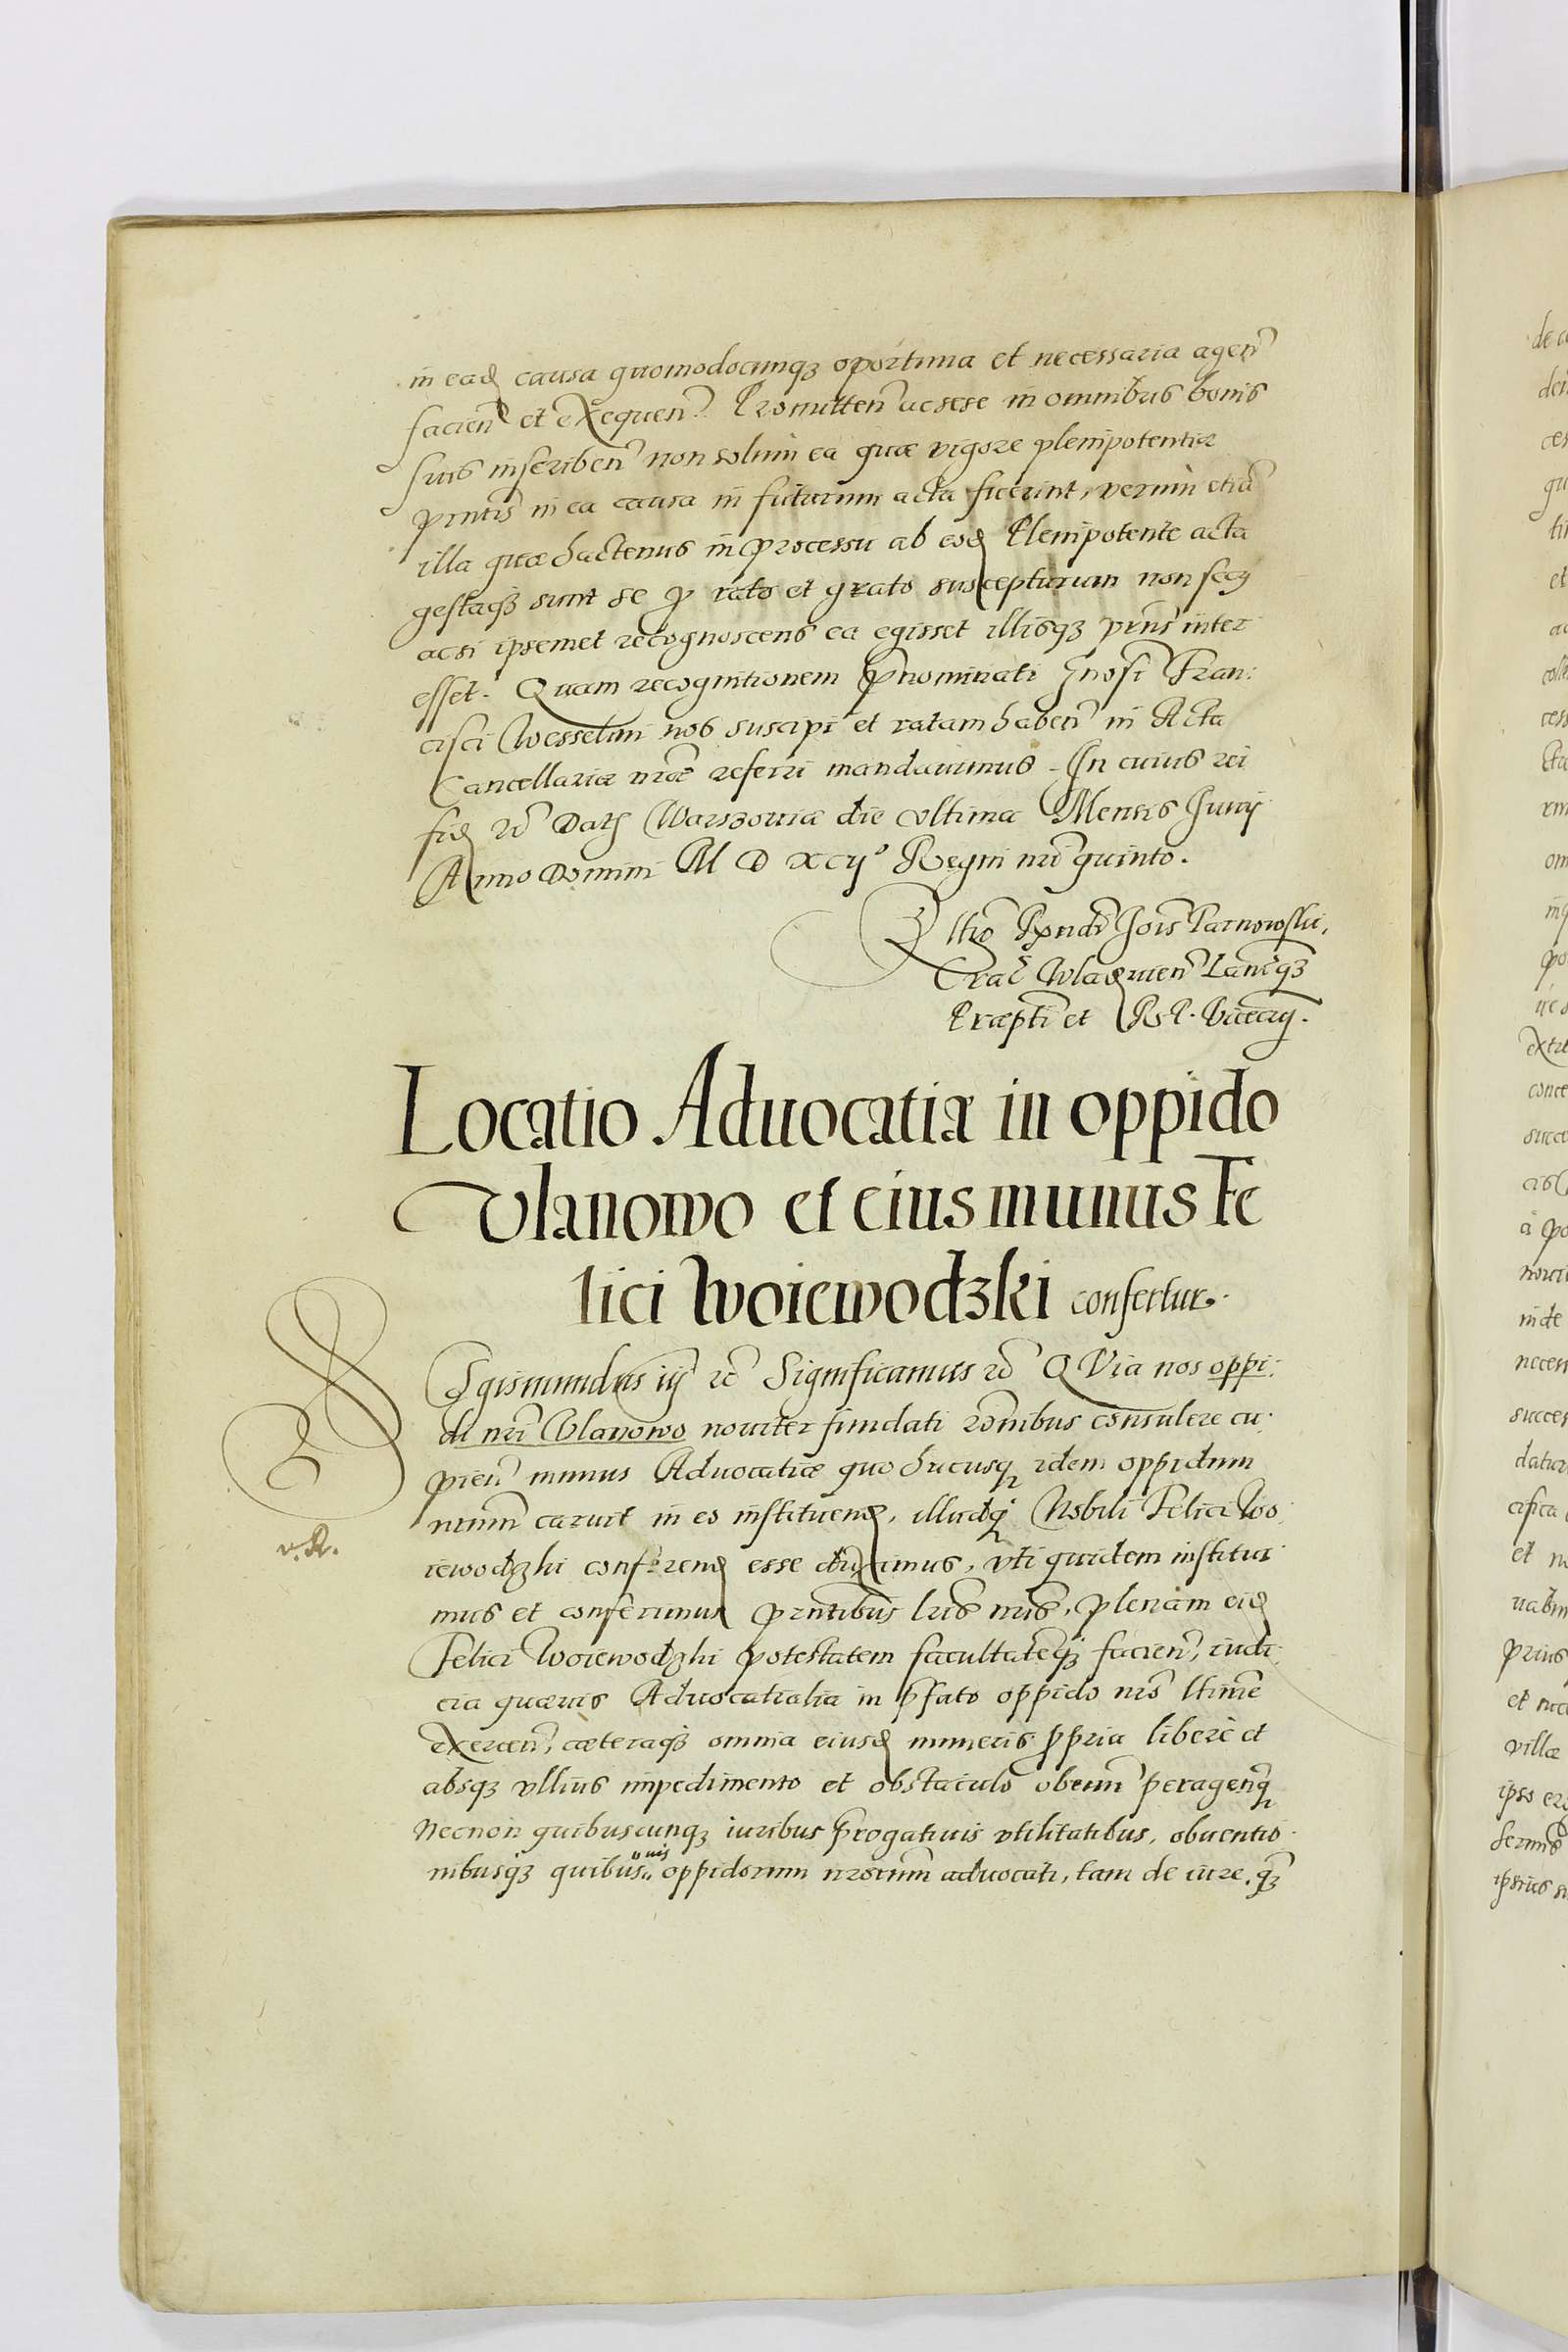 in ead causa quomodocunqз oportuna et necessaria agen̄
facien̄ et exequen̄. Promitten̄ ac sese in omnibus bonis
suis inscriben̄ non solum ea quæ vigore plenipotentiæ
pn̄tis in ea causa in futurum acta fuerint, verum etiā
illa quæ hactenus in processu ab eod Plenipotente acta
gestaqз sunt se p rato et grato suscepturum non secꝯ
ac si ipsemet recognoscens ea egisset illisqз pn̄s inter
esset. Quam recognitionem p̄nominati Gn̄osi Fran:
cisci Wesselini nos suscipi et ratam haben̄ in Acta
Cancellariæ nr̄æ referri mandavimus. In cuius rei
fid ɾc̄ Datß Warszoviæ die ultima Mensis Junij
Anno Domini M D xcij° Regni nr̄i quinto.
Rltio Rn̄di Jois Tarnowski,
Crac̄ Wladvien̄ Lanc̄qз
Præpti et R. P. Vicecan̄.
Locatio Aduocatiæ in oppido
Vlanowo et eius munus Fe
lici Woiewodzki confertur.
Sigismundus iij ɾc̄ Significamus ɾc̄ QVia nos oppi:
di nr̄i Vlanowo noviter fundati rōnibus consulere cu:
pien̄ munus Aduocatiæ quo hucusqз idem oppidum
nr̄um caruit in eo instituend, illudqз Nobili Felici Wo:
iewodzki conferend esse duximus, vti quidem institui
mus et conferimus pn̄tibus lr̄is nr̄is, plenam eid
Felici Woiewodzki potestatem facultatēqз facien̄, iudi:
cia quævis Aduocatialia in p̄fato oppido nr̄o ltime
exercen̄, cæteraqз omnia eiusd muneris ppria liberè et
absqз vllius impedimento et obstaculo obeun̄ peragenqз
Necnon quibuscunqз iuribus progativis vtilitatibus, obventio
nibusqз quibus ̈uis oppidorum nr̄orum aduocati, tam de iure qз̄
v. R.